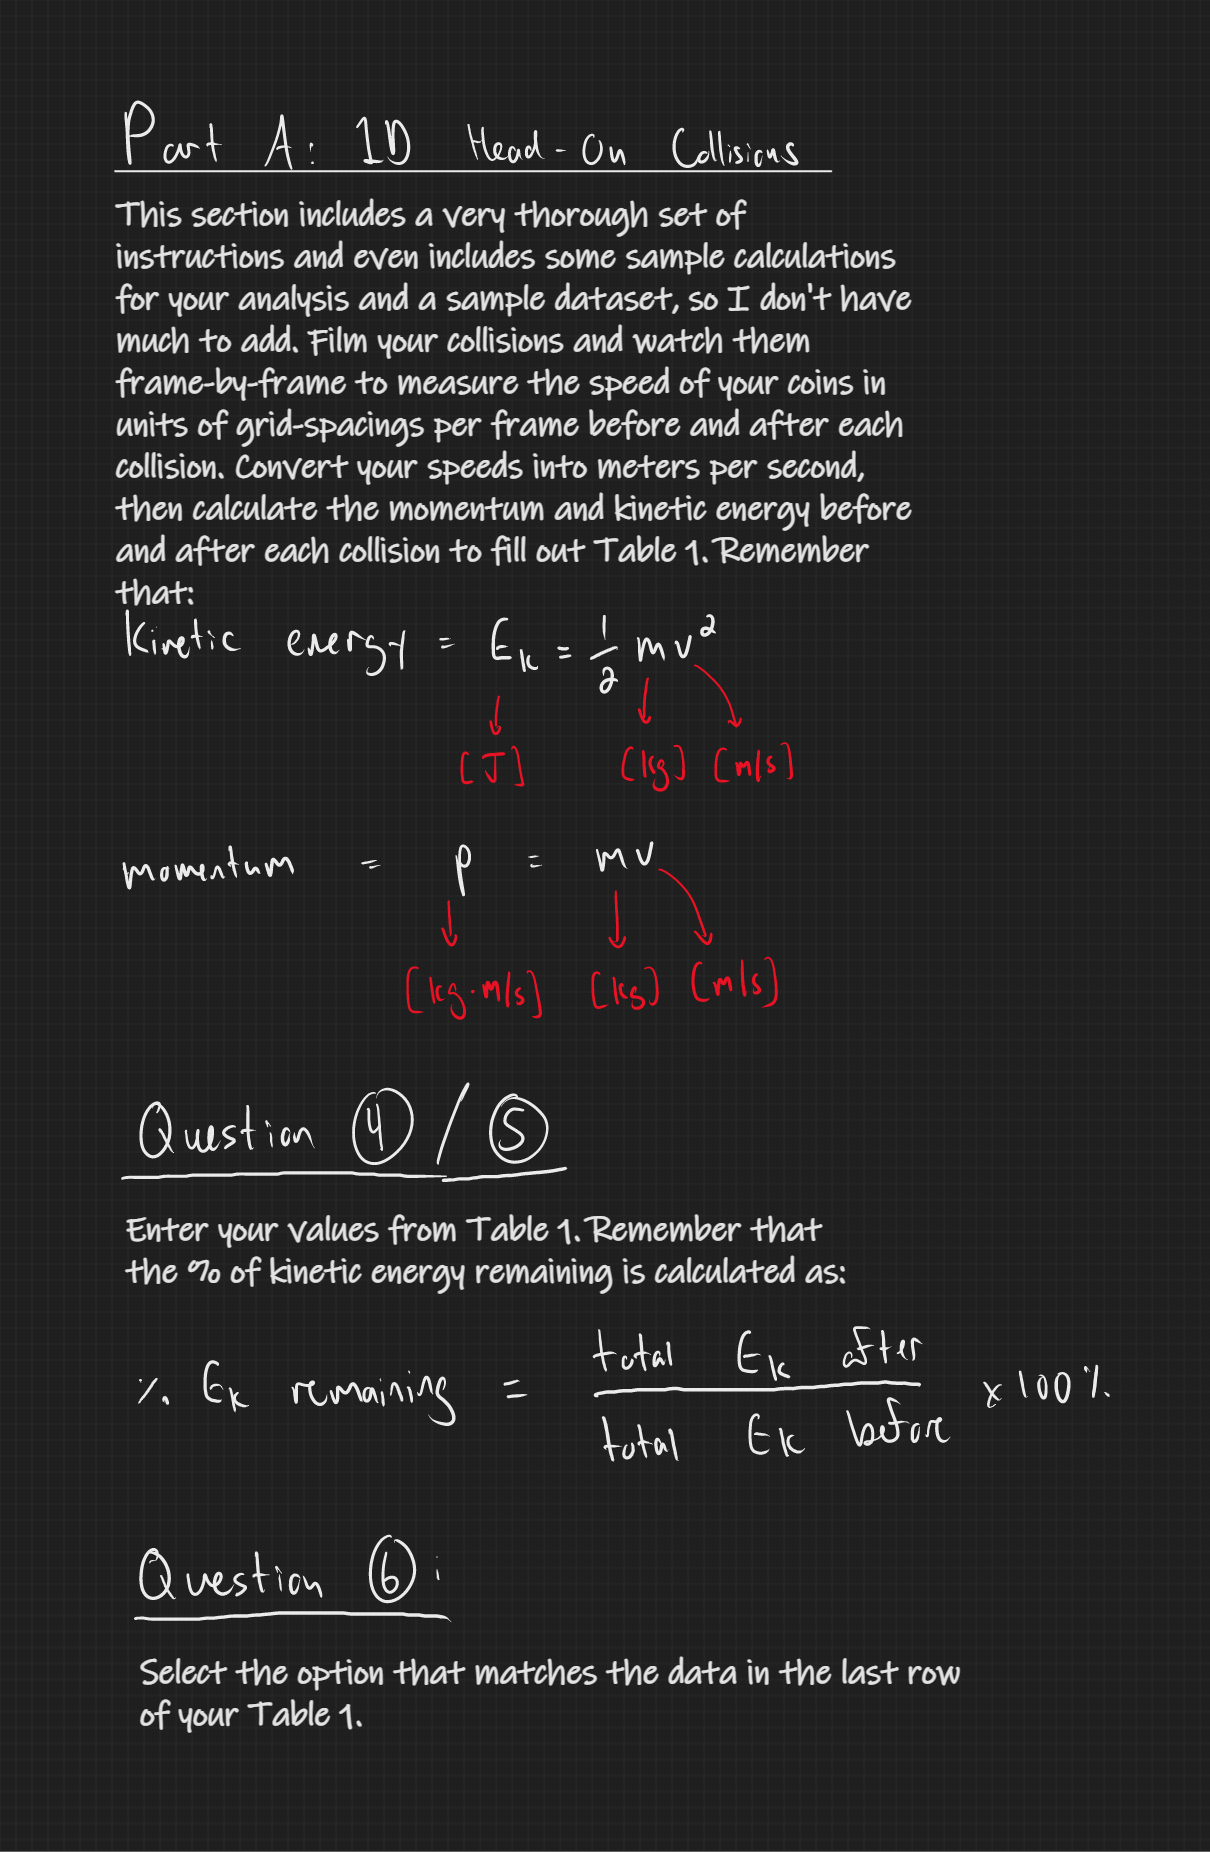 Part A: 1D Head-On Collisions
This section includes a very thorough set of
instructions and even includes some sample calculations
for your analysis and a sample dataset, so I don't have
much to add. Film your collisions and watch them
frame-by-frame to measure the speed of your coins in
units of grid-spacings per frame before and after each
collision. Convert your speeds into meters per second,
then calculate the momentum and kinetic energy before
and after each collision to fill out Table 1. Remember
that:
Kinetic energy = Eₖ = 1/2 mv²
[J] [kg] [m/s]
momentum = p = mv
[kg·m/s] [kg] [m/s]
Question ④ / ⑤
Enter your values from Table 1. Remember that
the % of kinetic energy remaining is calculated as:
% Eₖ remaining = total Eₖ after / total Eₖ before × 100%
Question ⑥:
Select the option that matches the data in the last row
of your Table 1.